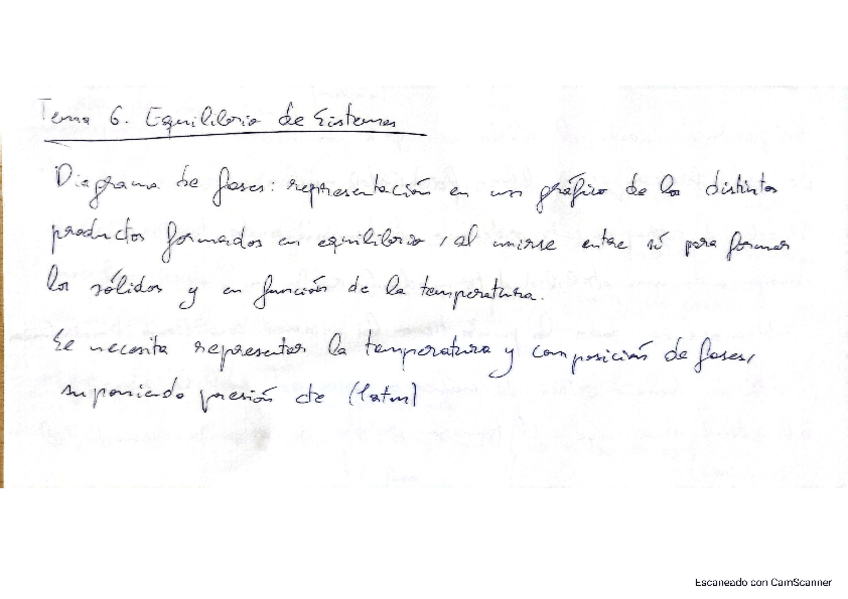 Tema 6. Equilibrio de Sistemas
Diagrama de fases: representación en un gráfico de los distintos
productos formados en equilibrio, al unirse entre sí para formar
los sólidos y en función de la temperatura.
Se necesita representar la temperatura y composición de fases,
suponiendo presión cte (1atm)
Escaneado con CamScanner